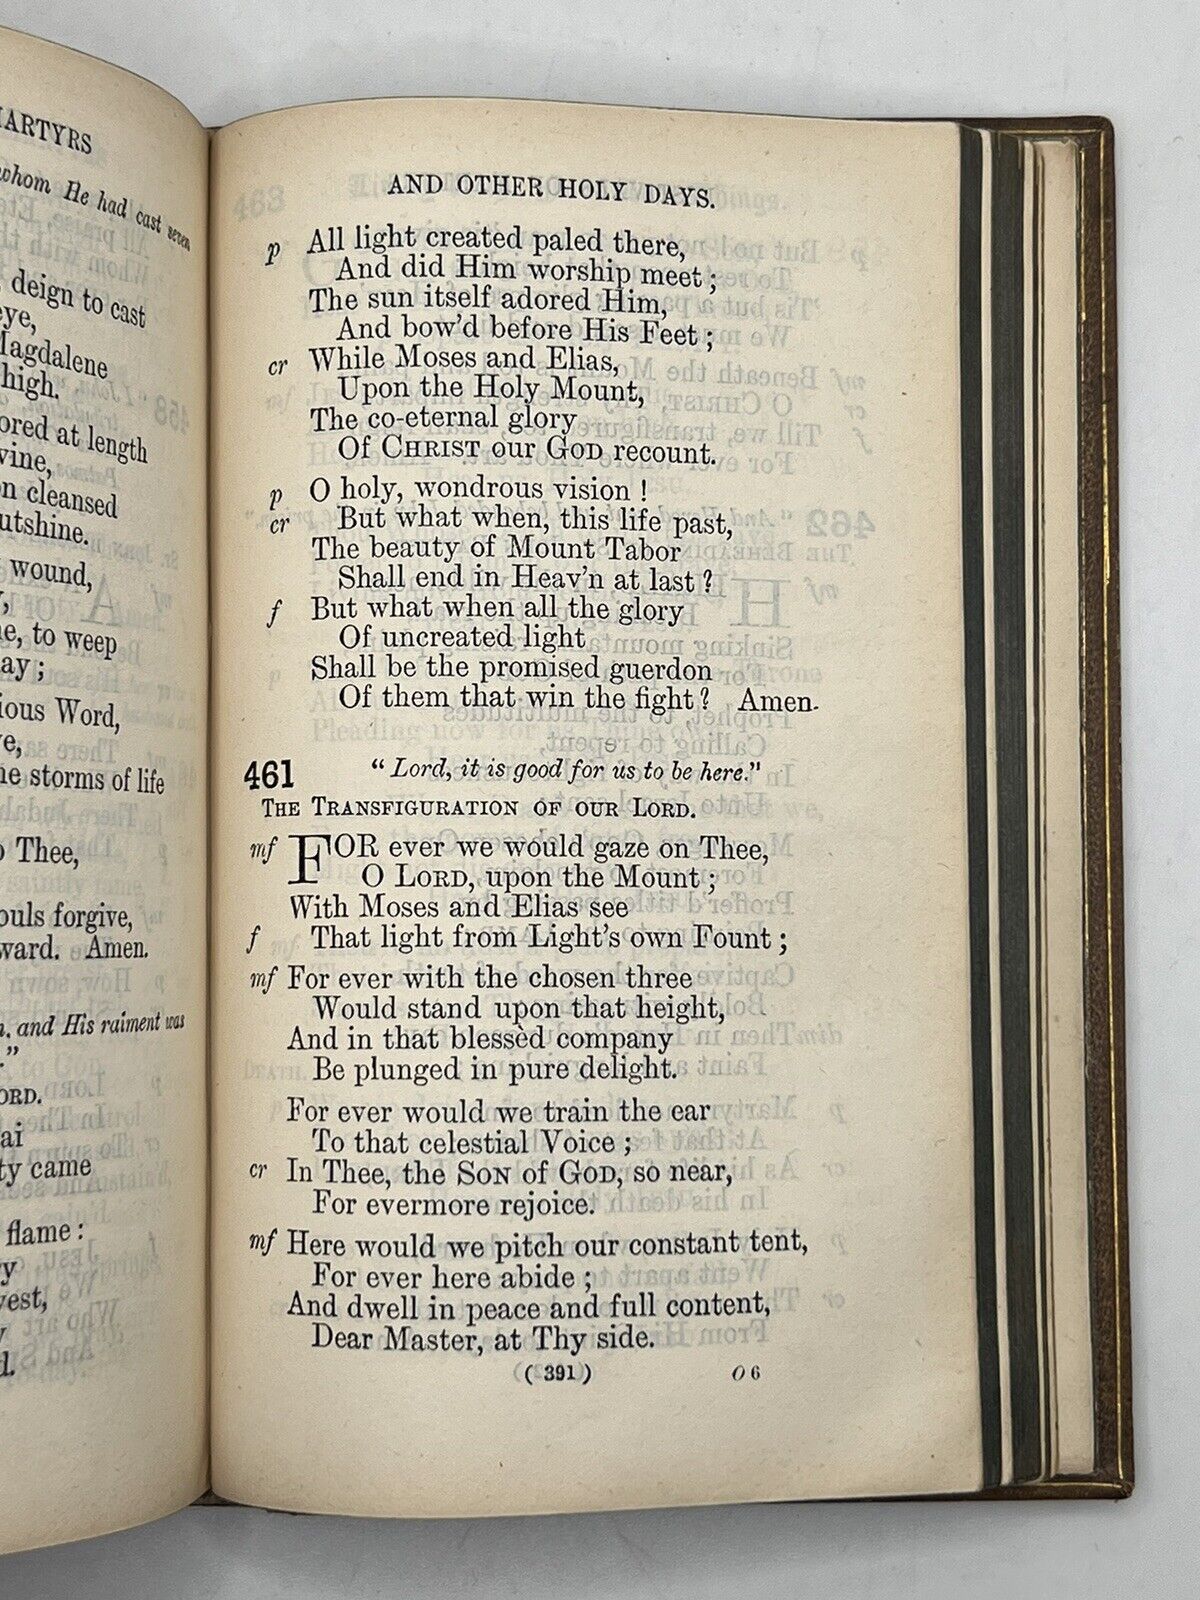 MARTYRS
whom He had cast seven
deign to cast
eye,
Magdalene
high.
ored at length
vine,
on cleansed
utshine.
wound,
to weep
ay ;
ious Word,
e storms of life
Thee,
ouls forgive,
ward. Amen.
and His raiment was
ORD.
ai
ty came
flame :
AND OTHER HOLY DAYS.
p All light created paled there,
And did Him worship meet ;
The sun itself adored Him,
And bow'd before His Feet ;
cr While Moses and Elias,
Upon the Holy Mount,
The co-eternal glory
Of CHRIST our GOD recount.
p O holy, wondrous vision !
cr But what when, this life past,
The beauty of Mount Tabor
Shall end in Heav'n at last ?
f But what when all the glory
Of uncreated light
Shall be the promised guerdon
Of them that win the fight ? Amen.
461 "Lord, it is good for us to be here."
THE TRANSFIGURATION OF OUR LORD.
mf FOR ever we would gaze on Thee,
O LORD, upon the Mount ;
With Moses and Elias see
f That light from Light's own Fount ;
mf For ever with the chosen three
Would stand upon that height,
And in that blessèd company
Be plunged in pure delight.
For ever would we train the ear
To that celestial Voice ;
cr In Thee, the SON of GOD, so near,
For evermore rejoice.
mf Here would we pitch our constant tent,
For ever here abide ;
And dwell in peace and full content,
Dear Master, at Thy side.
( 391 ) O 6